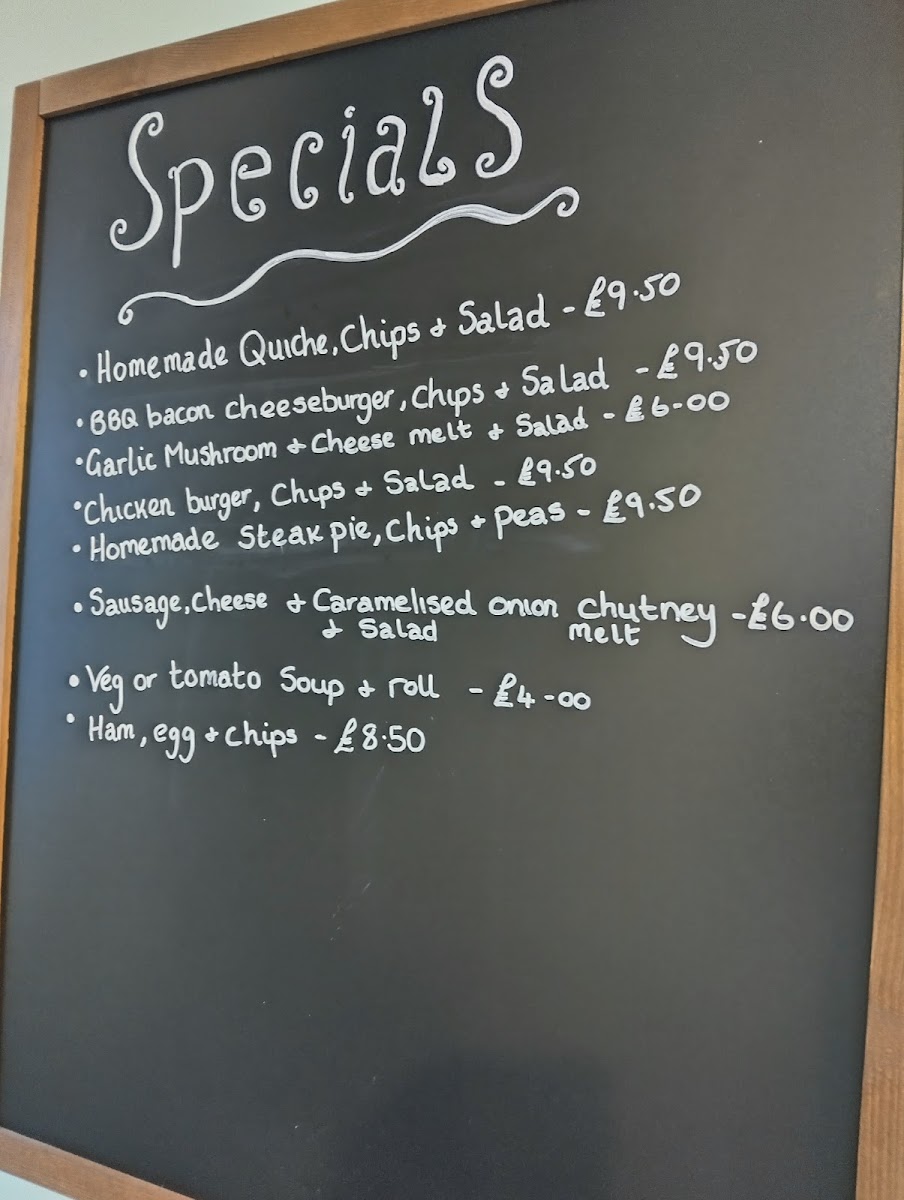 Specials
• Homemade Quiche, Chips & Salad - £9.50
• BBQ bacon cheeseburger, Chips & Salad - £9.50
• Garlic Mushroom & Cheese melt & Salad - £6-00
• Chicken burger, Chips & Salad - £9.50
• Homemade Steak pie, Chips + peas - £9.50
• Sausage, Cheese & Caramelised onion chutney - £6.00
& Salad melt
• Veg or tomato Soup & roll - £4-00
• Ham, egg & chips - £8.50